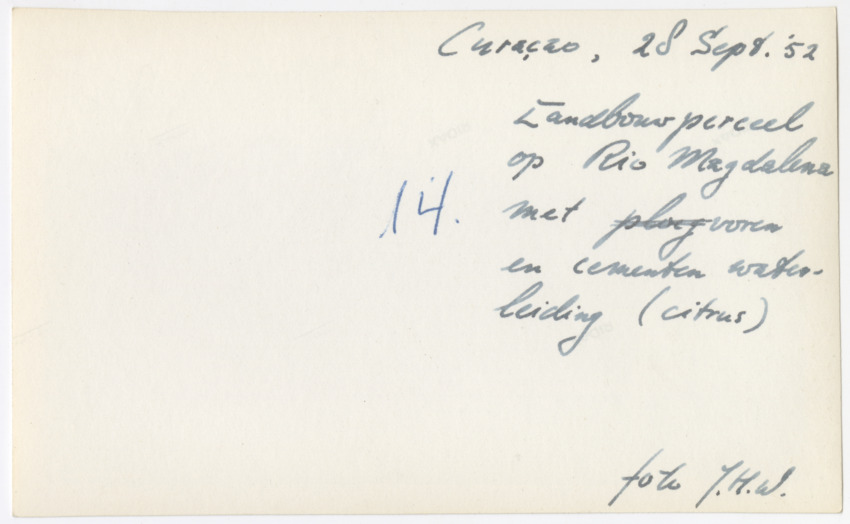 Curaçao, 28 Sept. '52
Landbouwperceel
op Rio Magdalena
14.
met ploegvoren
en cementen water-
leiding (citrus)
foto J.H.W.